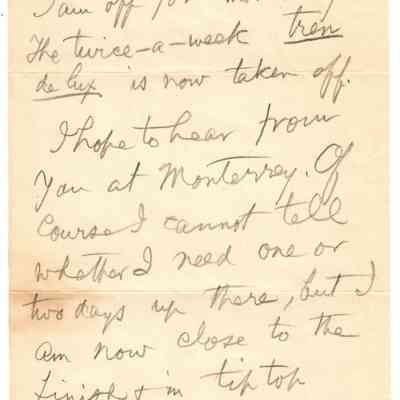 I am off for
The twice-a-week tren
de lux is now taken off.
I hope to hear from
you at Monterrey. Of
course I cannot tell
whether I need one or
two days up there, but I
am now close to the
finish & in tip top